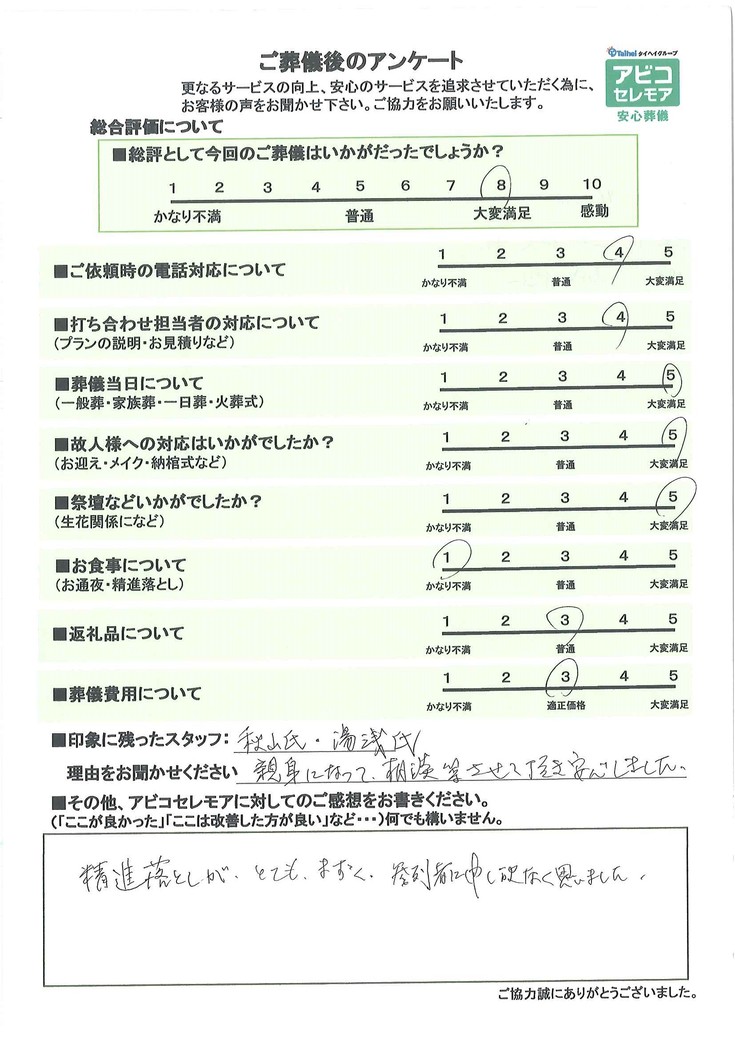 ご葬儀後のアンケート
Taihei タイヘイグループ
アビコ
セレモア
安心葬儀
更なるサービスの向上、安心のサービスを追求させていただく為に、
お客様の声をお聞かせ下さい。ご協力をお願いいたします。
総合評価について
■総評として今回のご葬儀はいかがだったでしょうか？
1 2 3 4 5 6 7 8 9 10
かなり不満 普通 大変満足 感動
■ご依頼時の電話対応について
1 2 3 4 5
かなり不満 普通 大変満足
■打ち合わせ担当者の対応について
(プランの説明・お見積りなど)
1 2 3 4 5
かなり不満 普通 大変満足
■葬儀当日について
(一般葬・家族葬・一日葬・火葬式)
1 2 3 4 5
かなり不満 普通 大変満足
■故人様への対応はいかがでしたか？
(お迎え・メイク・納棺式など)
1 2 3 4 5
かなり不満 普通 大変満足
■祭壇などいかがでしたか？
(生花関係になど)
1 2 3 4 5
かなり不満 普通 大変満足
■お食事について
(お通夜・精進落とし)
1 2 3 4 5
かなり不満 普通 大変満足
■返礼品について
1 2 3 4 5
かなり不満 普通 大変満足
■葬儀費用について
1 2 3 4 5
かなり不満 適正価格 大変満足
■印象に残ったスタッフ： 秋山氏・湯浅氏
理由をお聞かせください 親身になって、相談等させて頂き安心しました。
■その他、アビコセレモアに対してのご感想をお書きください。
(「ここが良かった」「ここは改善した方が良い」など・・・)何でも構いません。
精進落としが、とても、まずく、参列者に申し訳なく思いました。
ご協力誠にありがとうございました。